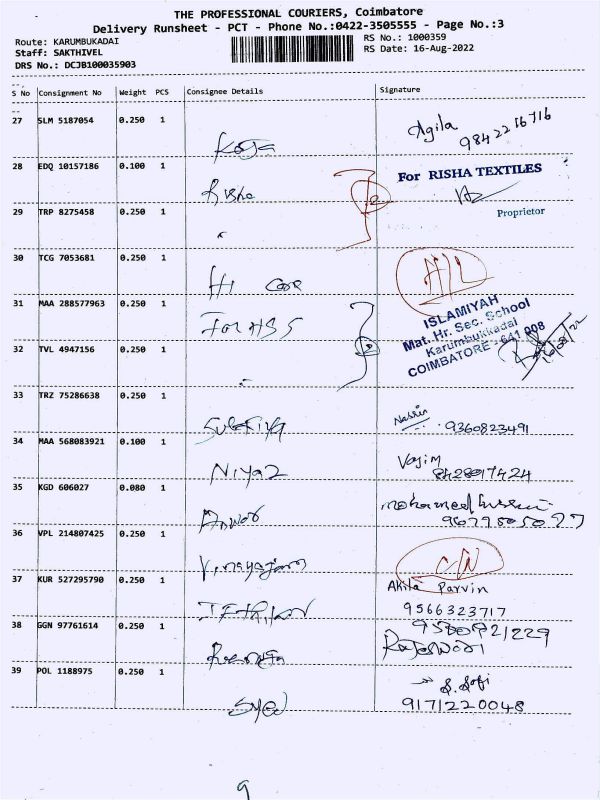 THE PROFESSIONAL COURIERS, Coimbatore
Delivery Runsheet - PCT - Phone No.:0422-3505555 - Page No.:3
Route: KARUMBUKADAI
Staff: SAKTHIVEL
DRS No.: DCJB100035903
RS No.: 1000359
RS Date: 16-Aug-2022
S No Consignment No Weight PCS Consignee Details Signature
27 SLM 5187054 0.250 1 Agila
9842216716
28 EDQ 10157186 0.100 1 Risha For RISHA TEXTILES
Proprietor
29 TRP 8275458 0.250 1 "
30 TCG 7053681 0.250 1 Hi care
31 MAA 288577963 0.250 1 ISLAMIYAH
Mat. Hr. Sec. School
Karumbukkadai
COIMBATORE - 641 008
32 TVL 4947156 0.250 1
33 TRZ 75286638 0.250 1 9360823491
34 MAA 568083921 0.100 1 Niyaz
8428017424
35 KGD 606027 0.080 1 Anwar
36 VPL 214807425 0.250 1 Vinayagam
37 KUR 527295790 0.250 1 Akila Parvin
9566323717
38 GGN 97761614 0.250 1 Rajeswari
39 POL 1188975 0.250 1 Syed S. Sofi
9171220048
9